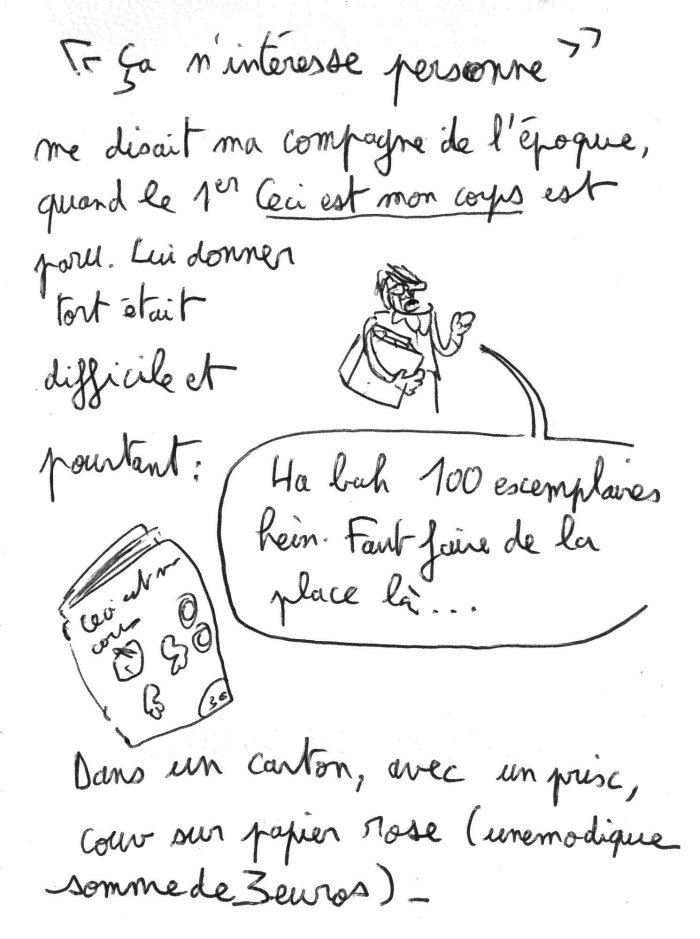 « Ça n'intéresse personne »
me disait ma compagne de l'époque,
quand le 1er Ceci est mon corps est
paru. Lui donner
tort était
difficile et
pourtant :
Ha bah 100 escemplaires
hein. Faut faire de la
place là...
Ceci est m
corps
3€
Dans un carton, avec un prisc,
couv sur papier rose (une modique
somme de 3 euros)_